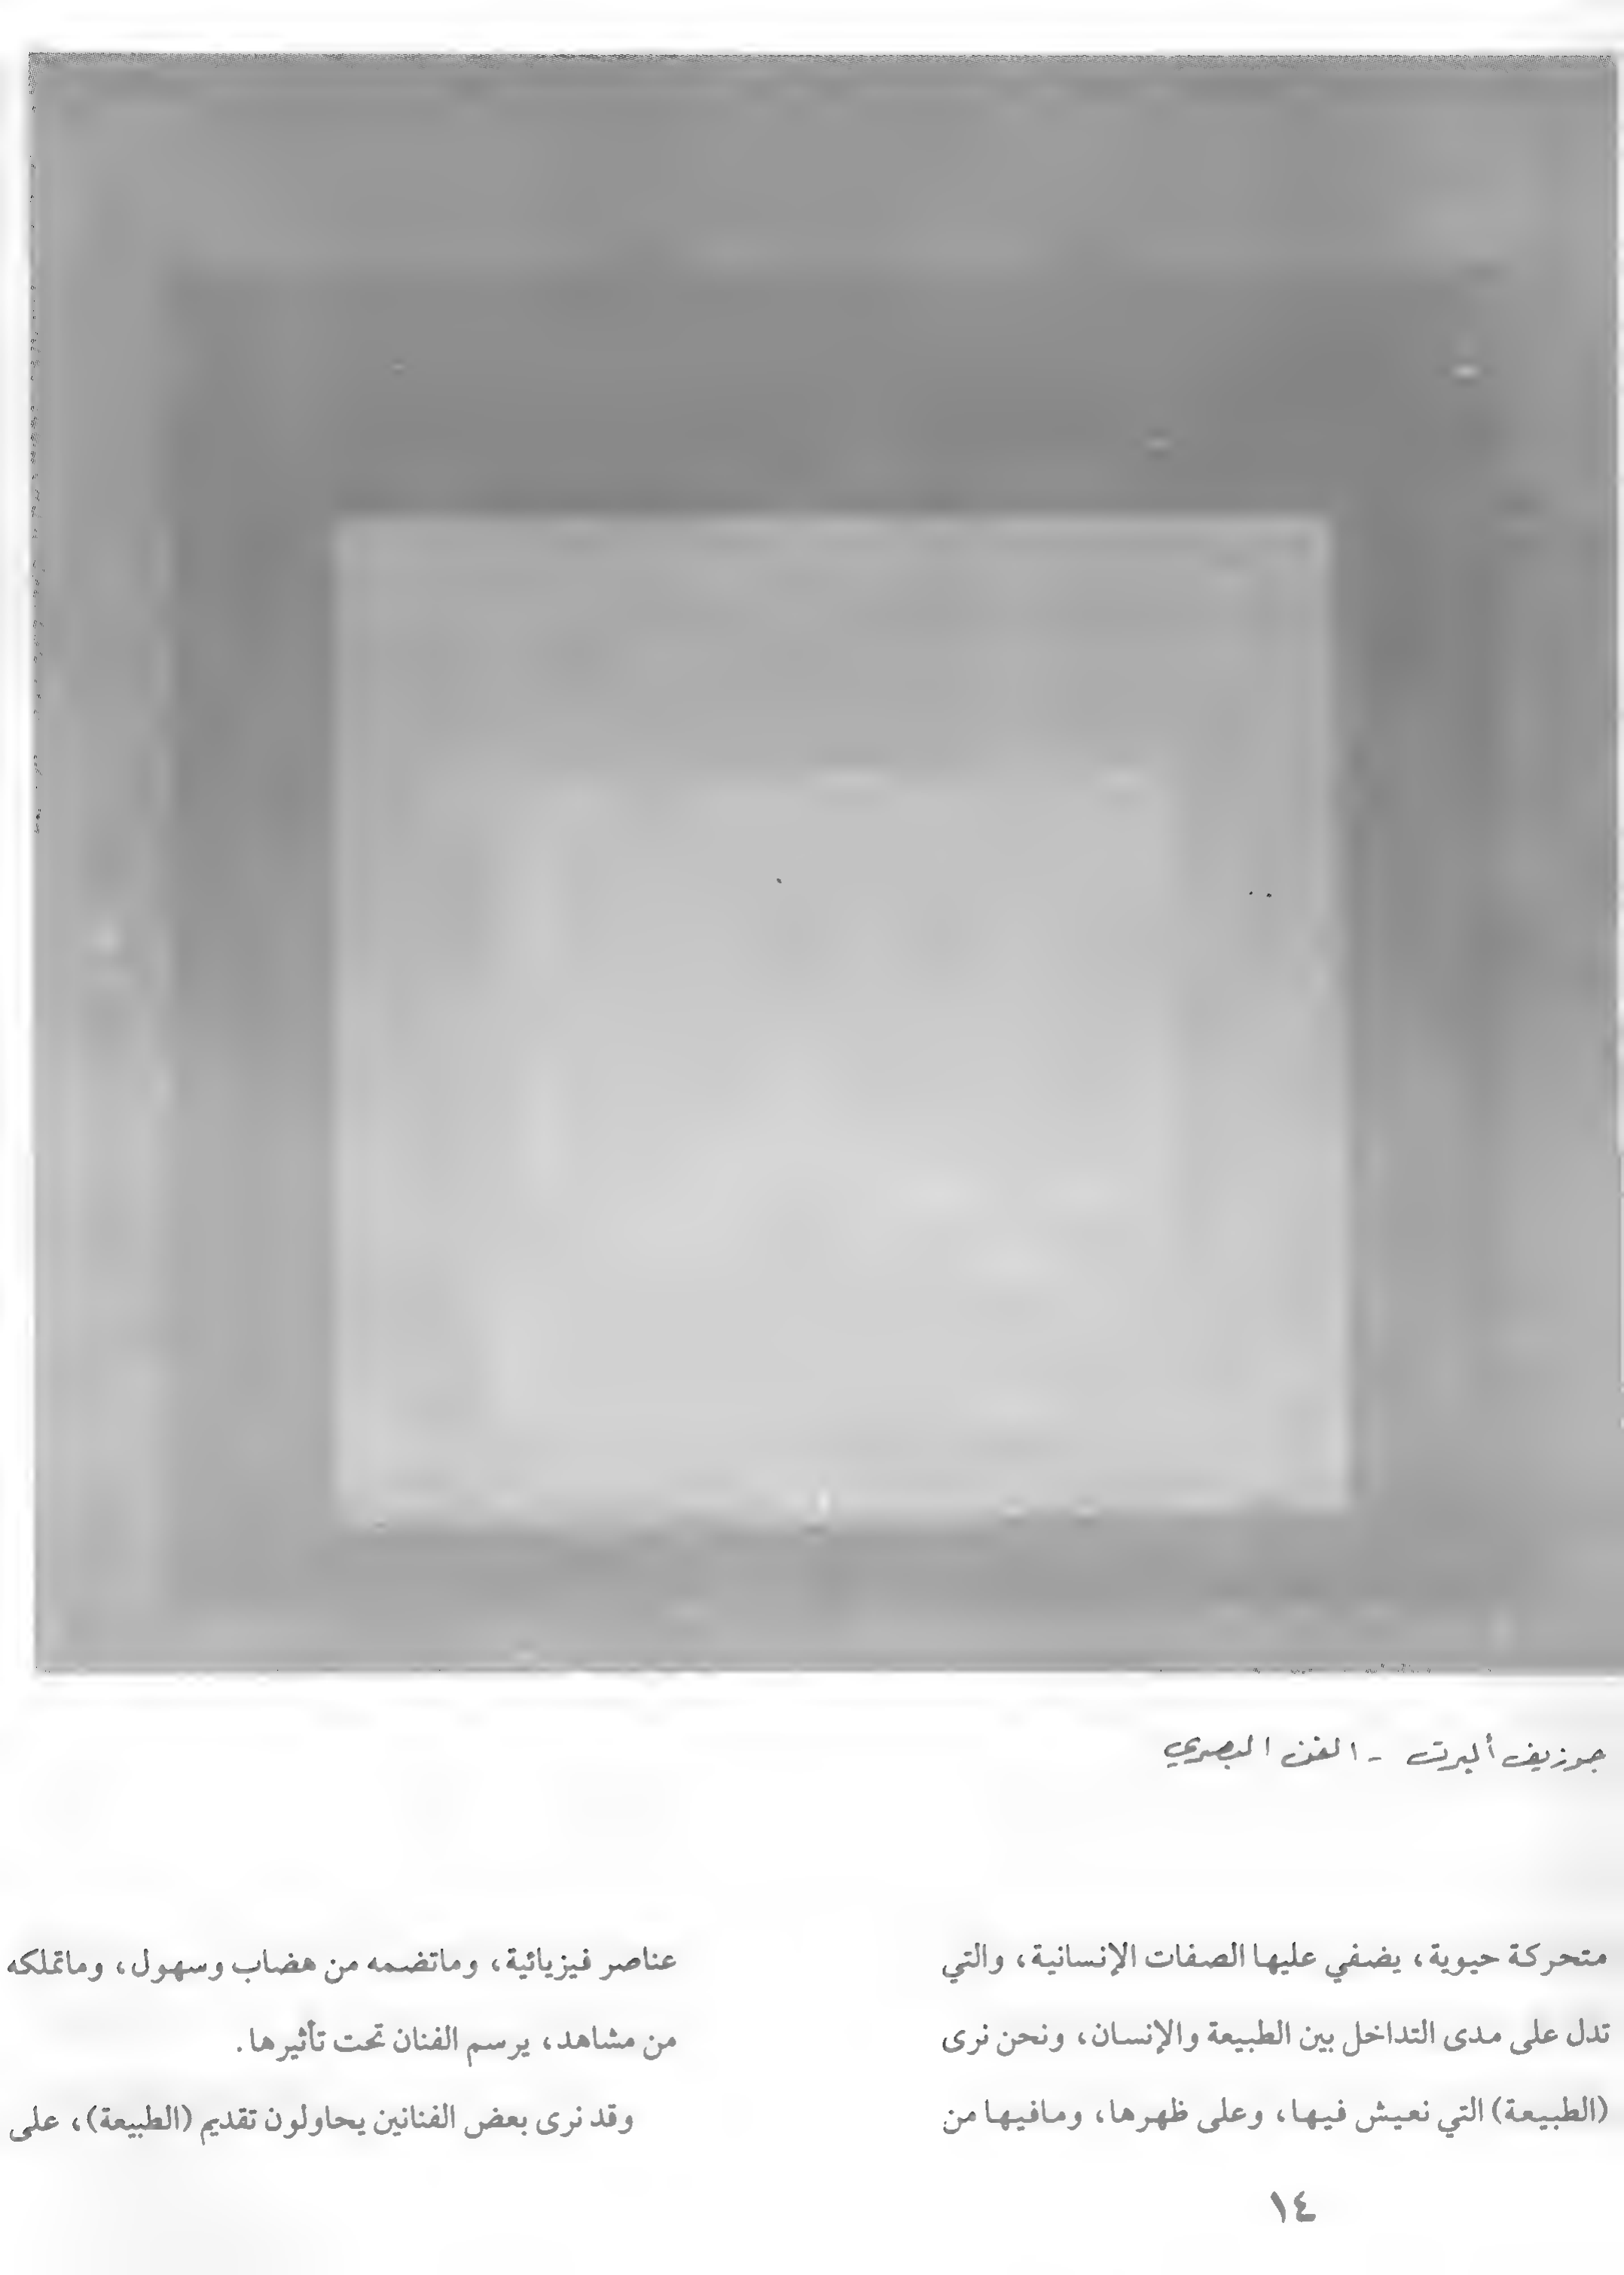 جوزيف ألبرت - الفن البصري
متحركة حيوية، يضفي عليها الصفات الإنسانية، والتي
تدل على مدى التداخل بين الطبيعة والإنسان، ونحن نرى
(الطبيعة) التي نعيش فيها، وعلى ظهرها، ومافيها من
عناصر فيزيائية، وماتضمه من هضاب وسهول، وماتملكه
من مشاهد، يرسم الفنان تحت تأثيرها.
وقد نرى بعض الفنانين يحاولون تقديم (الطبيعة)، على
١٤